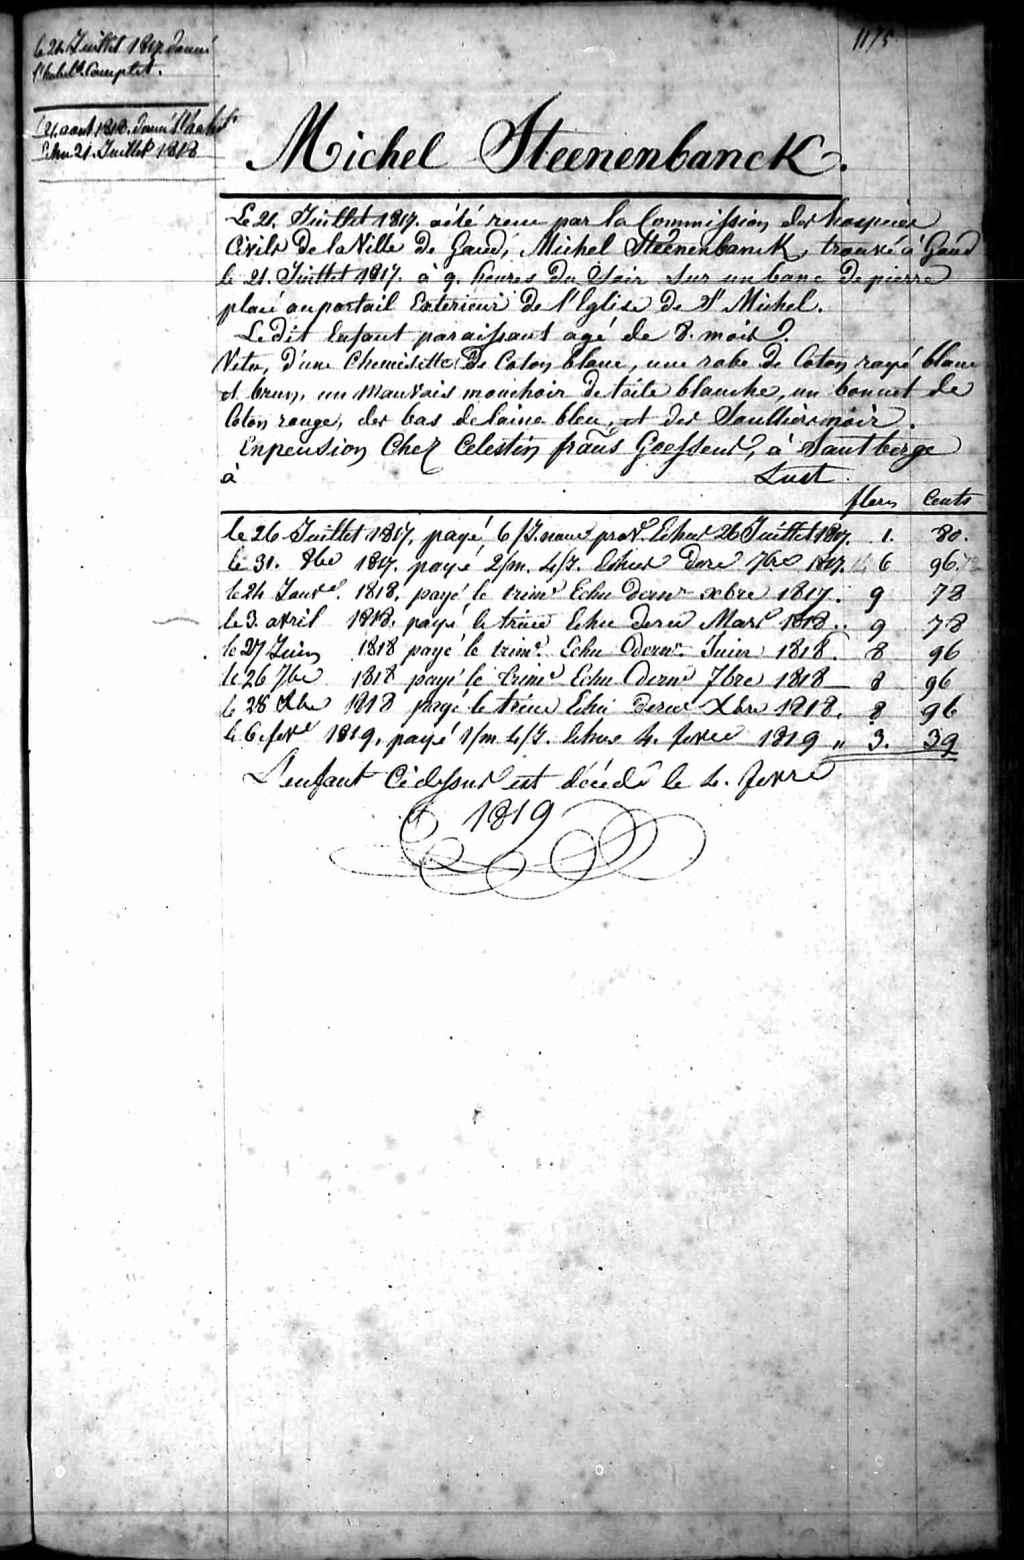 1175
le 26 Juillet 1817 donné
l'habilt. Complet.
21. aout 1818. donné l'habilt.
Echu 21. Juillet 1818
Michel Steenenbanck.
Le 21. Juillet 1817. a été recu par la Commission des hospices
Civils de la Ville de Gand, Michel Steenenbanck, trouvé à Gand
le 21. Juillet 1817. à 9. heures du Soir sur un banc de pierre
placé au portail Exterieur de l'Eglise de St Michel.
Le dit Enfant paraissant agé de 8. mois.
Vetu, d'une Chemisette de Coton blanc, une robe de Coton rayé blanc
et brun, un mauvais mouchoir de toile blanche, un bonnet de
Coton rouge, des bas de laine bleu, et des Soulliers noir.
En pension Chez Celestin frans Goessens, à Santberge
à Lust
flors Cents
le 26 Juillet 1817. payé 6/J. nour prov. Echus 26 Juillet 1817. 1. 80.
le 31. 8bre 1817. payé 2/m. 4/J. Echus dere 7bre 1817. 6 96
le 24 Janvr. 1818. payé le trime Echu dernr xbre 1817. 9 78
le 3. avril 1818. payé le trime Echu dernr Mars 1818. 9 78
le 27 Juin 1818 payé le trime Echu dernr. Juin 1818. 8 96
le 26 7bre 1818 payé le trime Echu dernr 7bre 1818 8 96
le 28 Xbre 1818 payé le trime Echu dernr Xbre 1818. 8 96
le 6. fevr 1819, payé 1/m 4/J. Echus 4. fevre 1819 „ 3. 39
L'enfant Cidessus est décédé le 4. fevre
1819